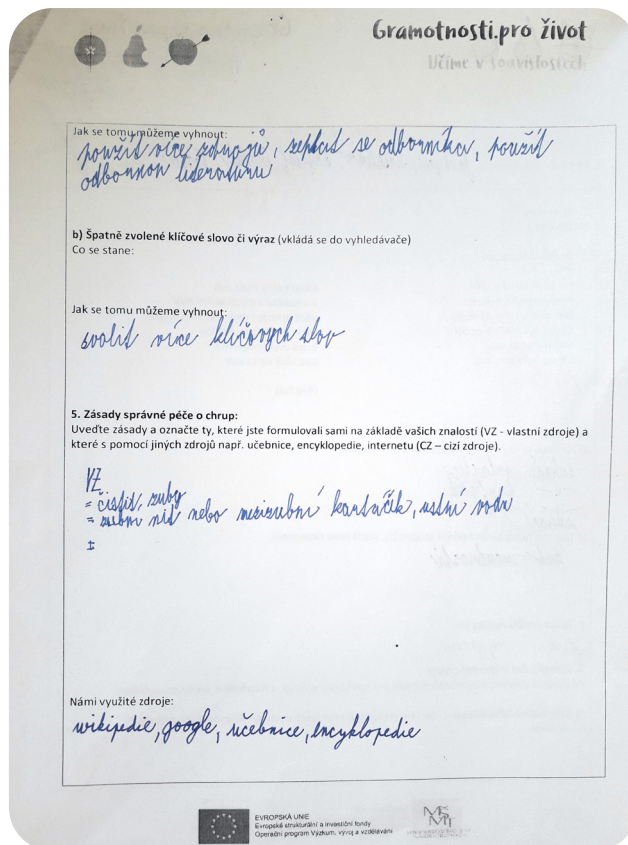 Gramotnosti.pro život
Učíme v souvislostech
Jak se tomu můžeme vyhnout:
použít více zdrojů, zeptat se odborníka, použít
odbornou literaturu
b) Špatně zvolené klíčové slovo či výraz (vkládá se do vyhledávače)
Co se stane:
Jak se tomu můžeme vyhnout:
zvolit více klíčových slov
5. Zásady správné péče o chrup:
Uveďte zásady a označte ty, které jste formulovali sami na základě vašich znalostí (VZ - vlastní zdroje) a
které s pomocí jiných zdrojů např. učebnice, encyklopedie, internetu (CZ – cizí zdroje).
VZ
= čistit zuby
= zubní nit nebo mezizubní kartáček, ústní voda
Námi využité zdroje:
wikipedie, google, učebnice, encyklopedie
EVROPSKÁ UNIE
Evropské strukturální a investiční fondy
Operační program Výzkum, vývoj a vzdělávání